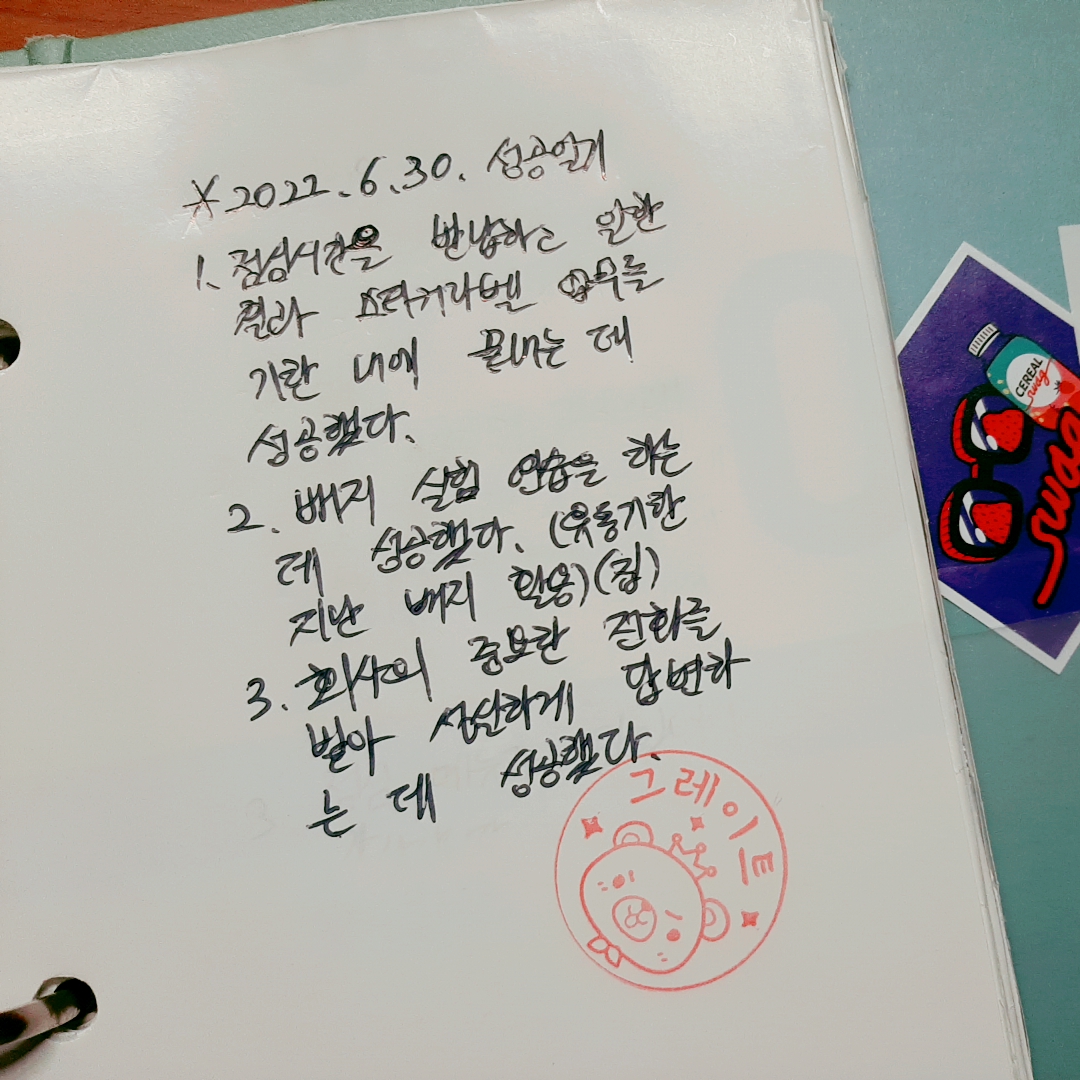 ※2022.6.30. 성공일기
1. 점심시간을 반납하고 일한
결과 스티커라벨 업무를
기한 내에 끝내는 데
성공했다.
2. 배지 실험 연습을 하는
데 성공했다. (유통기한
지난 배지 활용)(집)
3. 회사의 중요한 전화를
받아 성실하게 답변하
는 데 성공했다.
그레이트
CEREAL
swag
swag